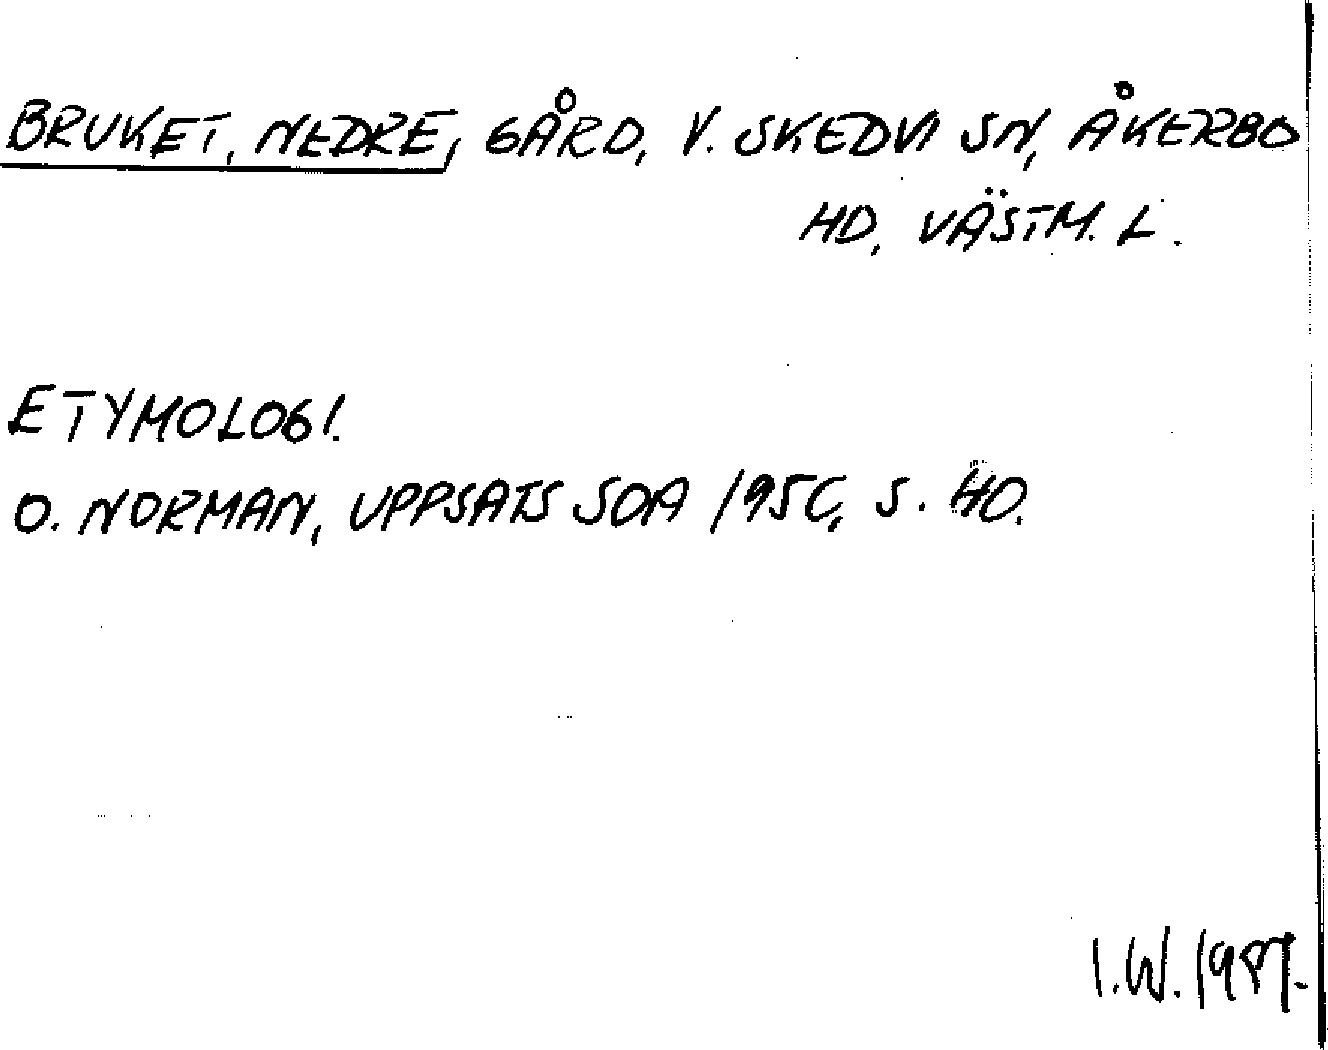 BRUKET, NEDRE, GÅRD, V. SKEDVI SN, ÅKERBO
HD, VÄSTM. L.
ETYMOLOGI.
O. NORMAN, UPPSATS SOA 1950, S. 40.
I.W. 1987.